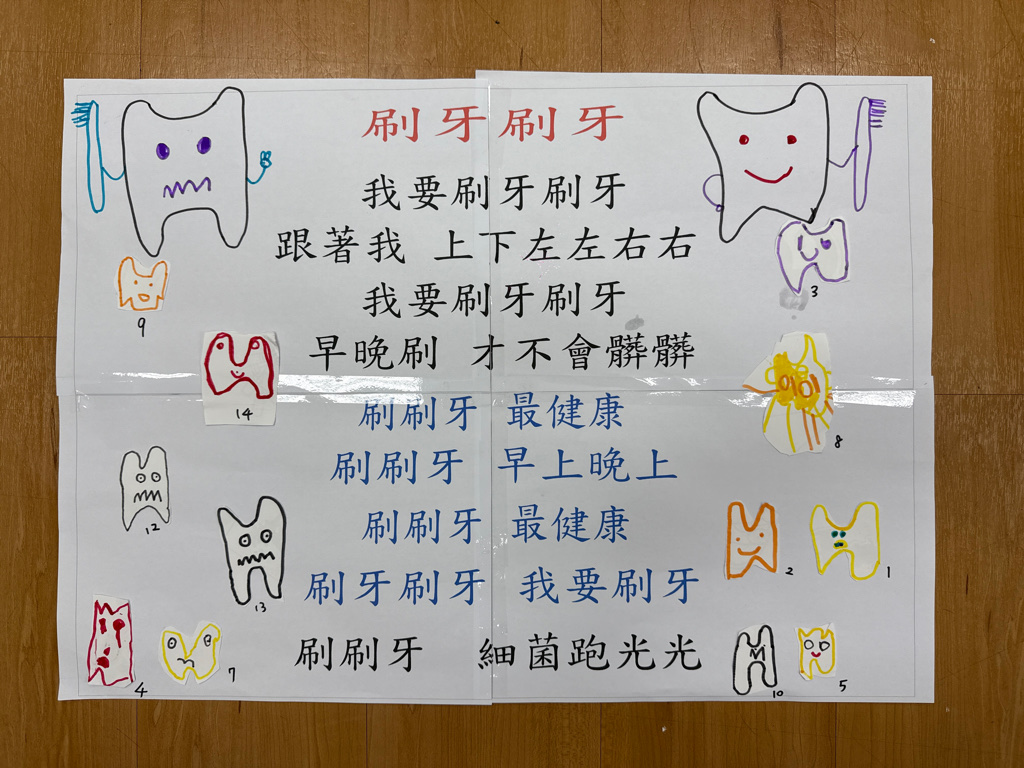 刷牙刷牙
我要刷牙刷牙
跟著我 上下左左右右
我要刷牙刷牙
早晚刷 才不會髒髒
刷刷牙 最健康
刷刷牙 早上晚上
刷刷牙 最健康
刷牙刷牙 我要刷牙
刷刷牙 細菌跑光光
9
3
14
8
12
13
2
1
4
7
10
5